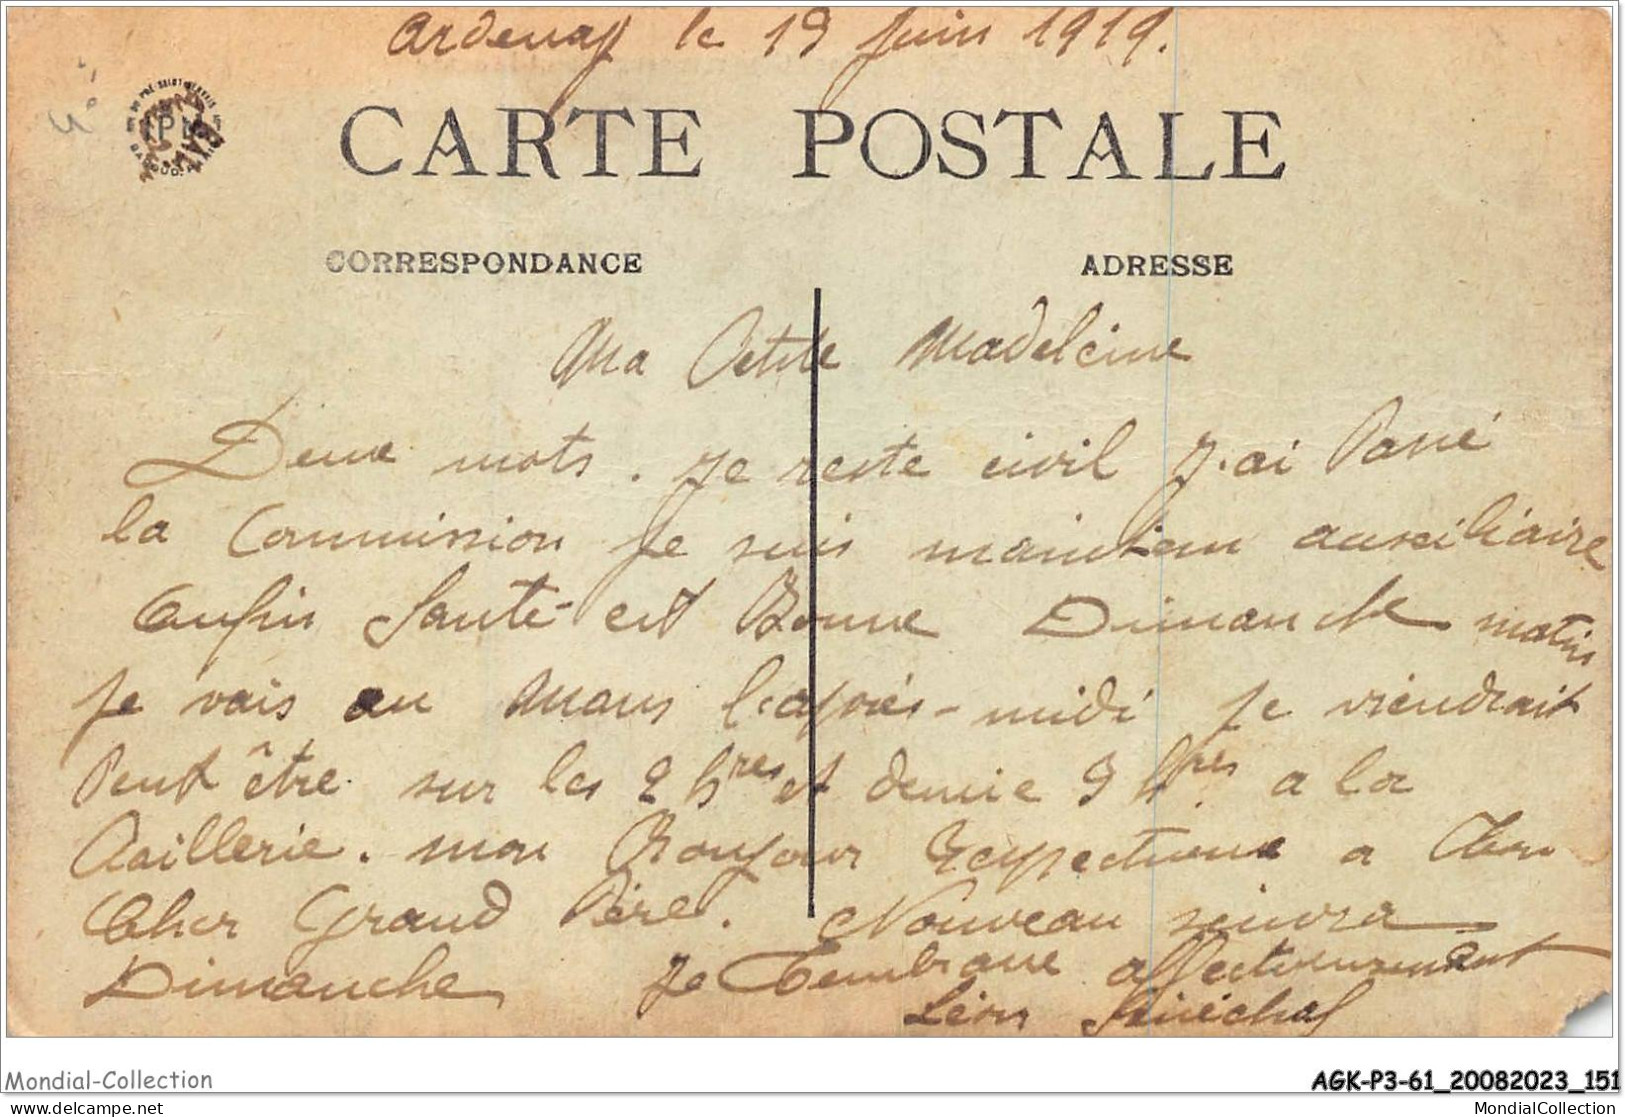 Ardenay le 19 Juin 1919.
CARTE POSTALE
CORRESPONDANCE
ADRESSE
Ma Petite Madeleine
Deux mots. Je reste civil J.ai Passé
la Commission Je suis maintenu auxiliaire
Enfin Santé est Bonne Dimanche matin
Je vais au Mans l.après-midi Je viendrait
Peut être sur les 2 hres et demie 3 hres a la
Raillerie. mon Bonjour Respectueux a
Cher Grand Père. Nouveau suivra
Dimanche Je T'embrasse affectueusement
Léon Sénéchal
Mondial-Collection
AGK-P3-61_20082023_151
www.delcampe.net
MondialCollection